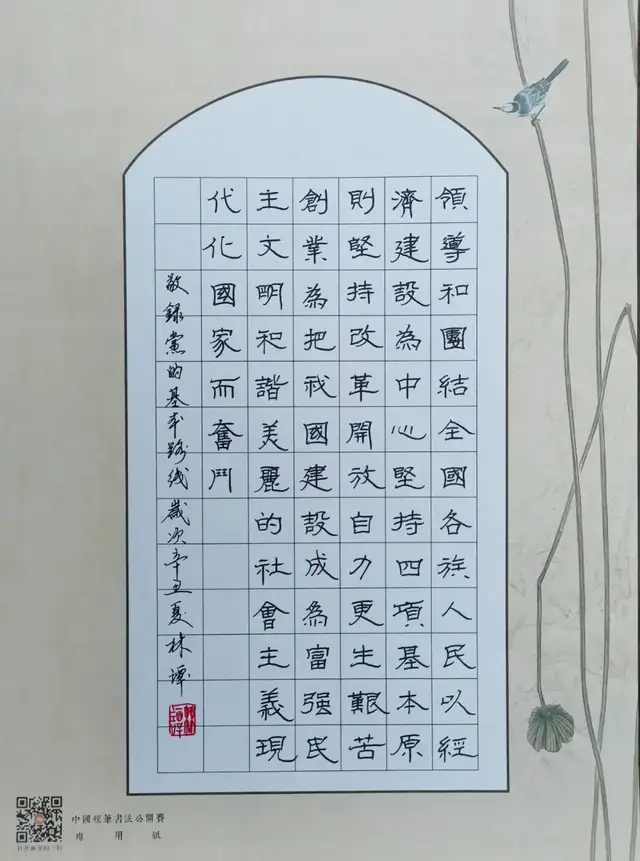 領導和團結全國各族人民以經
濟建設為中心堅持四項基本原
則堅持改革開放自力更生艱苦
創業為把我國建設成為富强民
主文明和諧美麗的社會主義現
代化國家而奮鬥
敬錄黨的基本路线歲次辛丑夏林譚
中國硬筆書法公開賽
專用紙